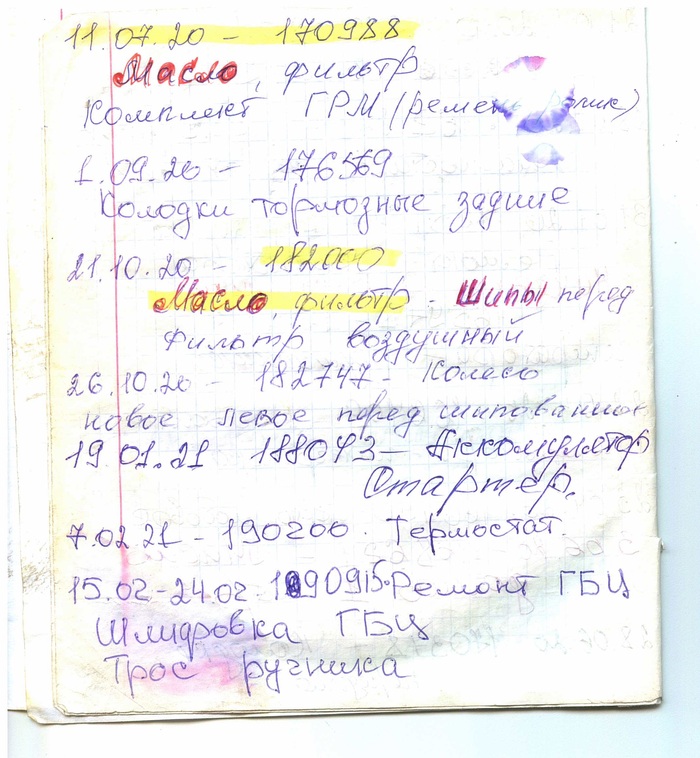 11.07.20 - 170988
Масло, фильтр
Комплект ГРМ (ремень ролик)
1.09.20 - 176569
Колодки тормозные задние
21.10.20 - 182000
Масло, фильтр - Шипы перед
Фильтр воздушный
26.10.20 - 182747 - Колесо
новое левое перед шипованное
19.01.21 188043 - Аккомулятор
Стартер.
7.02.21 - 190200. Термостат.
15.02-24.02. 190915. Ремонт ГБЦ
Шлифовка ГБЦ
Трос ручника